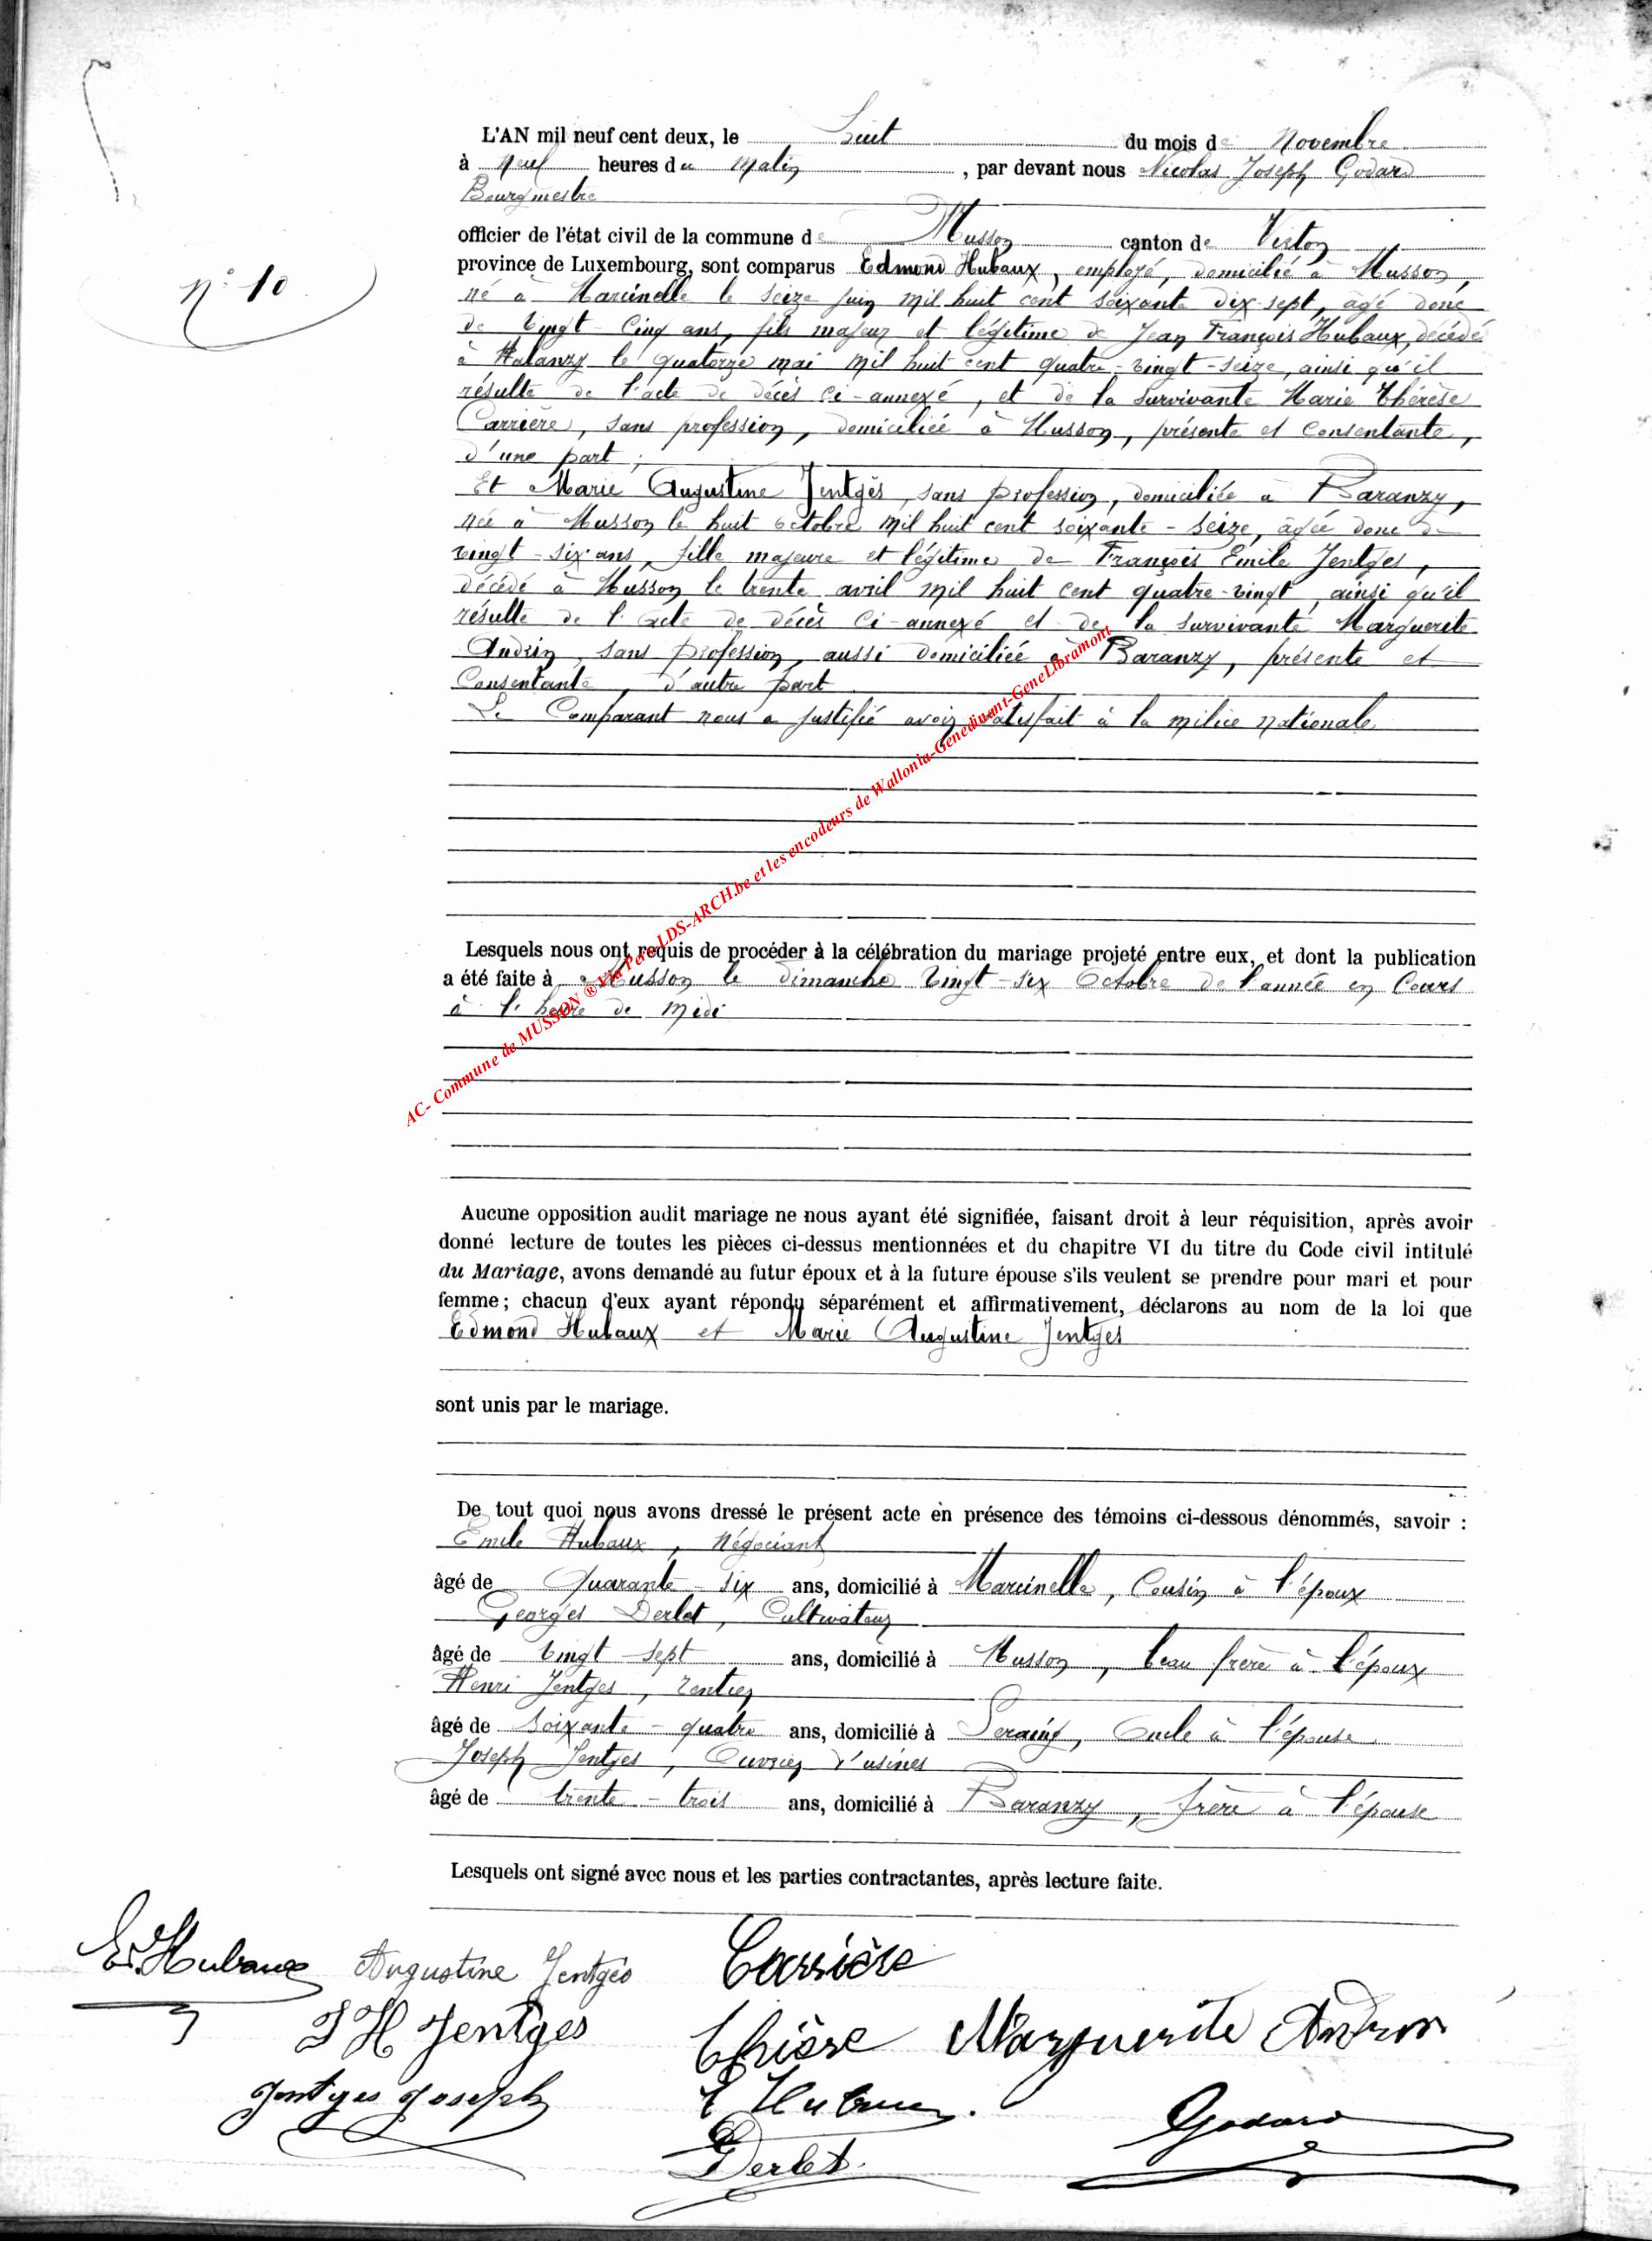 L'AN mil neuf cent deux, le huit du mois de Novembre
à neuf heures du matin, par devant nous Nicolas Joseph Godard
Bourgmestre
officier de l'état civil de la commune de Musson canton de Virton
n° 10
province de Luxembourg, sont comparus Edmond Hubaux, employé, domicilié à Musson,
né à Marcinelle le seize juin mil huit cent soixante dix-sept, âgé donc
de vingt-cinq ans, fils majeur et légitime de Jean François Hubaux, décédé
à Halanzy le quatorze mai mil huit cent quatre-vingt-seize, ainsi qu'il
résulte de l'acte de décès ci-annexé, et de la survivante Marie Thérèse
Carrière, sans profession, domiciliée à Musson, présente et consentante,
d'une part;
Et Marie Augustine Jentgès, sans profession, domiciliée à Baranzy,
née à Musson le huit octobre mil huit cent soixante-seize, âgée donc de
vingt-six ans, fille majeure et légitime de François Emile Jentges,
décédé à Musson le trente avril mil huit cent quatre-vingt, ainsi qu'il
résulte de l'acte de décès ci-annexé et de la survivante Marguerite
Andrin, sans profession, aussi domiciliée à Baranzy, présente et
consentante, d'autre part.
Le Comparant nous a justifié avoir satisfait à la milice nationale
AC- Commune de MUSSON ® Via Pero LDS-ARCH.be et les encodeurs de Wallonia-Genedinant-GeneLibramont
Lesquels nous ont requis de procéder à la célébration du mariage projeté entre eux, et dont la publication
a été faite à Musson le dimanche vingt-six Octobre de l'année en cours
à l'heure de midi
Aucune opposition audit mariage ne nous ayant été signifiée, faisant droit à leur réquisition, après avoir
donné lecture de toutes les pièces ci-dessus mentionnées et du chapitre VI du titre du Code civil intitulé
du Mariage, avons demandé au futur époux et à la future épouse s'ils veulent se prendre pour mari et pour
femme; chacun d'eux ayant répondu séparément et affirmativement, déclarons au nom de la loi que
Edmond Hubaux et Marie Augustine Jentges
sont unis par le mariage.
De tout quoi nous avons dressé le présent acte en présence des témoins ci-dessous dénommés, savoir :
Emile Hubaux, Négociant
âgé de quarante-six ans, domicilié à Marcinelle, Cousin à l'époux
Georges Derlet, Cultivateur
âgé de vingt-sept ans, domicilié à Musson, beau frère à l'époux
Henri Jentges, rentier
âgé de soixante-quatre ans, domicilié à Seraing, Oncle à l'épouse
Joseph Jentges, Ouvrier d'usines
âgé de trente-trois ans, domicilié à Baranzy, frère à l'épouse
Lesquels ont signé avec nous et les parties contractantes, après lecture faite.
Ed. Hubaux Augustine Jentgès Carrière
J H Jentges Thièse Marguerite Andrin
Jentges Joseph E Hubaux.
Derlet. Godard